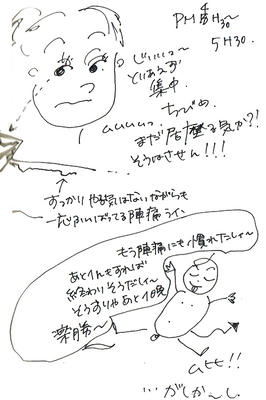 PM 4H30〜
5H30.
じぃぃぃっ〜
とりあえず
集中.
ちびめ.
uuuuuっ.
まだ居座る気か?!
そうはさせん!!!
すっかりやる気はないながらも
一応ふんばってる陣痛ライ.
もう陣痛にも慣れたしゃ〜
あと1人もすれば
終わりそうだしぃ〜
そうすりゃあと1晩
楽勝〜
att!!
...がしか〜し